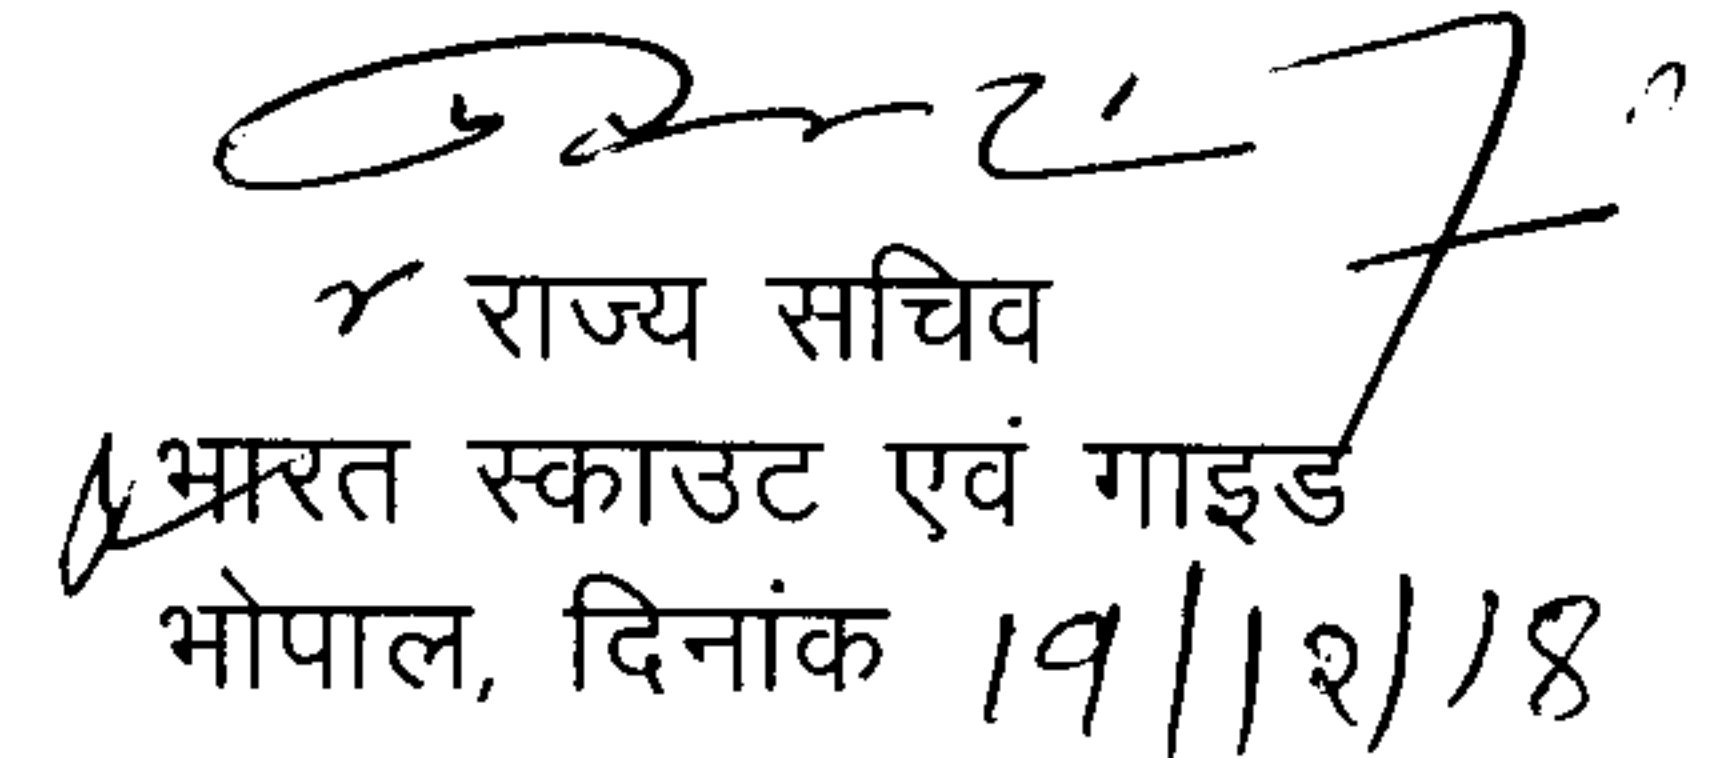 राज्य सचिव
भारत स्काउट एवं गाइड
भोपाल, दिनांक 19/12/18